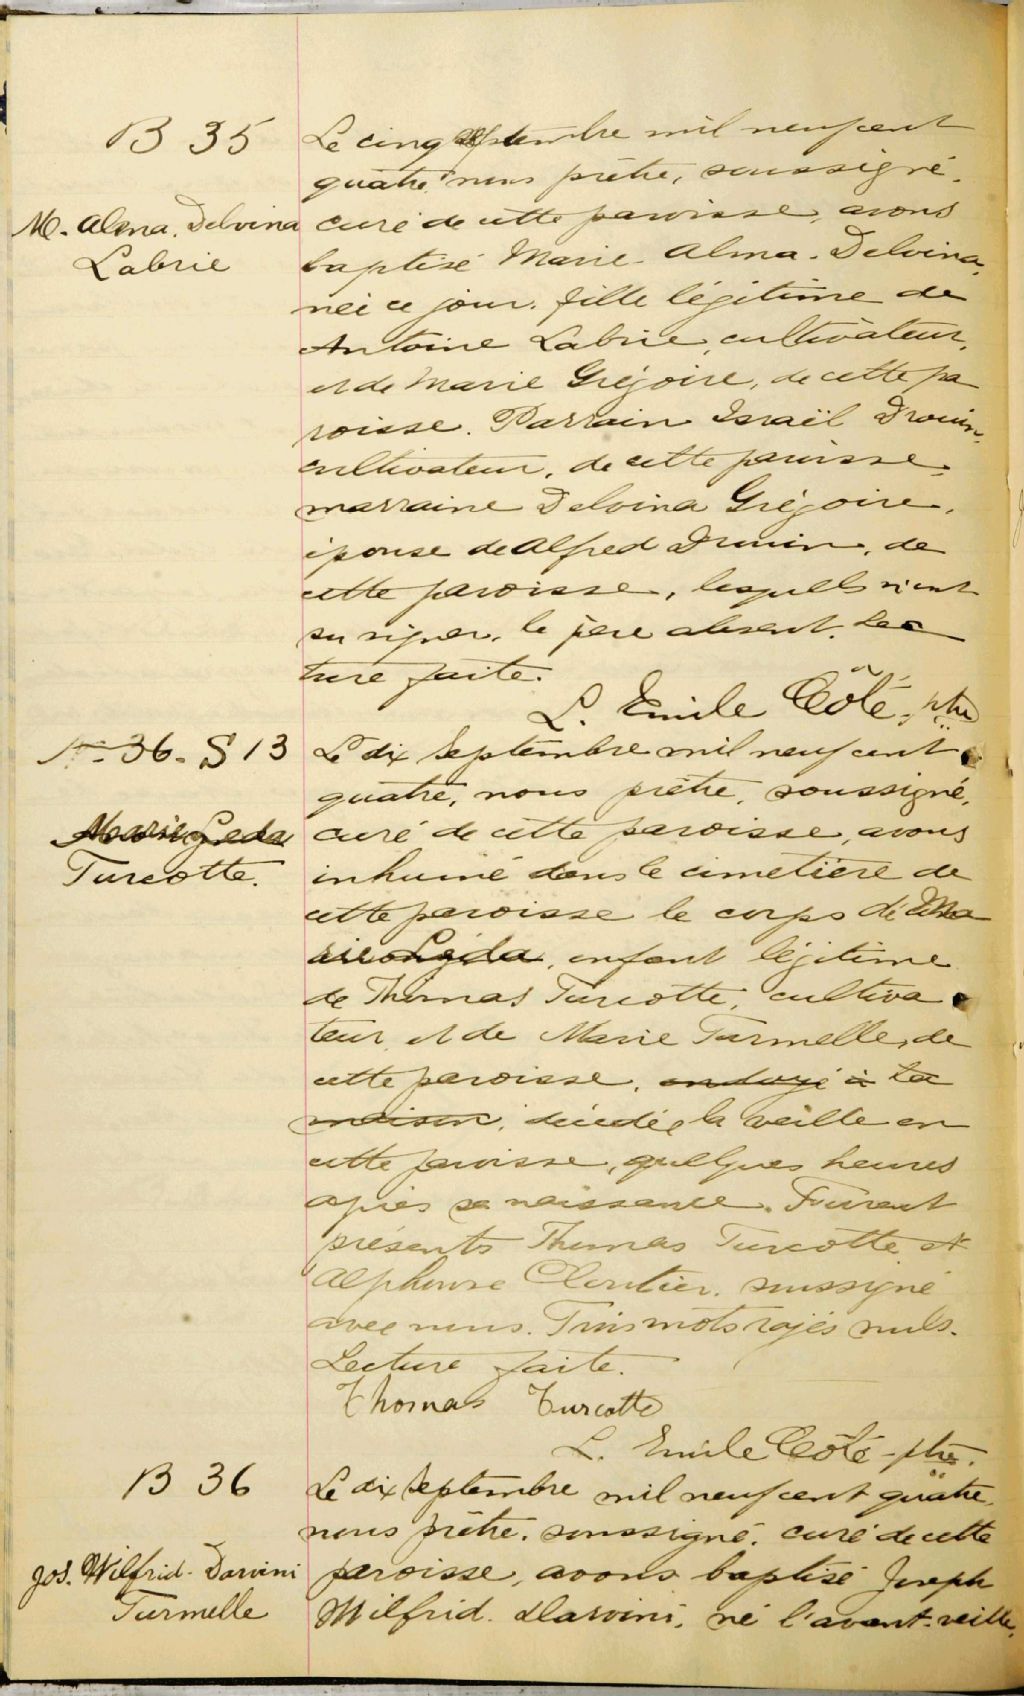 B 35
M. Alma. Delvina
Labrie
Le cinq septembre mil neuf cent
quatre, nous prêtre, soussigné,
curé de cette paroisse, avons
baptisé Marie. Alma. Delvina,
née ce jour, fille légitime de
Antoine Labrie, cultivateur,
et de Marie Grégoire, de cette pa
roisse. Parrain Israël Drouin,
cultivateur, de cette paroisse,
marraine Delvina Grégoire,
épouse de Alfred Drouin, de
cette paroisse, lesquels n'ont
su signer, le père absent. Lec
ture faite.
L. Emile Côté, ptre
N° 36. S 13
Turcotte.
Le dix septembre mil neuf cent
quatre, nous prêtre, soussigné,
curé de cette paroisse, avons
inhumé dans le cimetière de
cette paroisse le corps de Ma
rie Léda, enfant légitime
de Thomas Turcotte, cultiva
teur, et de Marie Turmelle, de
cette paroisse, ondoyé à la
maison, décédée la veille en
cette paroisse, quelques heures
après sa naissance. Furent
présents Thomas Turcotte et
Alphonse Cloutier, soussigné
avec nous. Trois mots rayés nuls.
Lecture faite.
Thomas Turcotte
L. Emile Côté - ptre.
B 36
Jos. Wilfrid. Darvini
Turmelle
Le dix septembre mil neuf cent quatre,
nous prêtre, soussigné, curé de cette
paroisse, avons baptisé Joseph
Wilfrid. Darvini, né l'avant-veille,